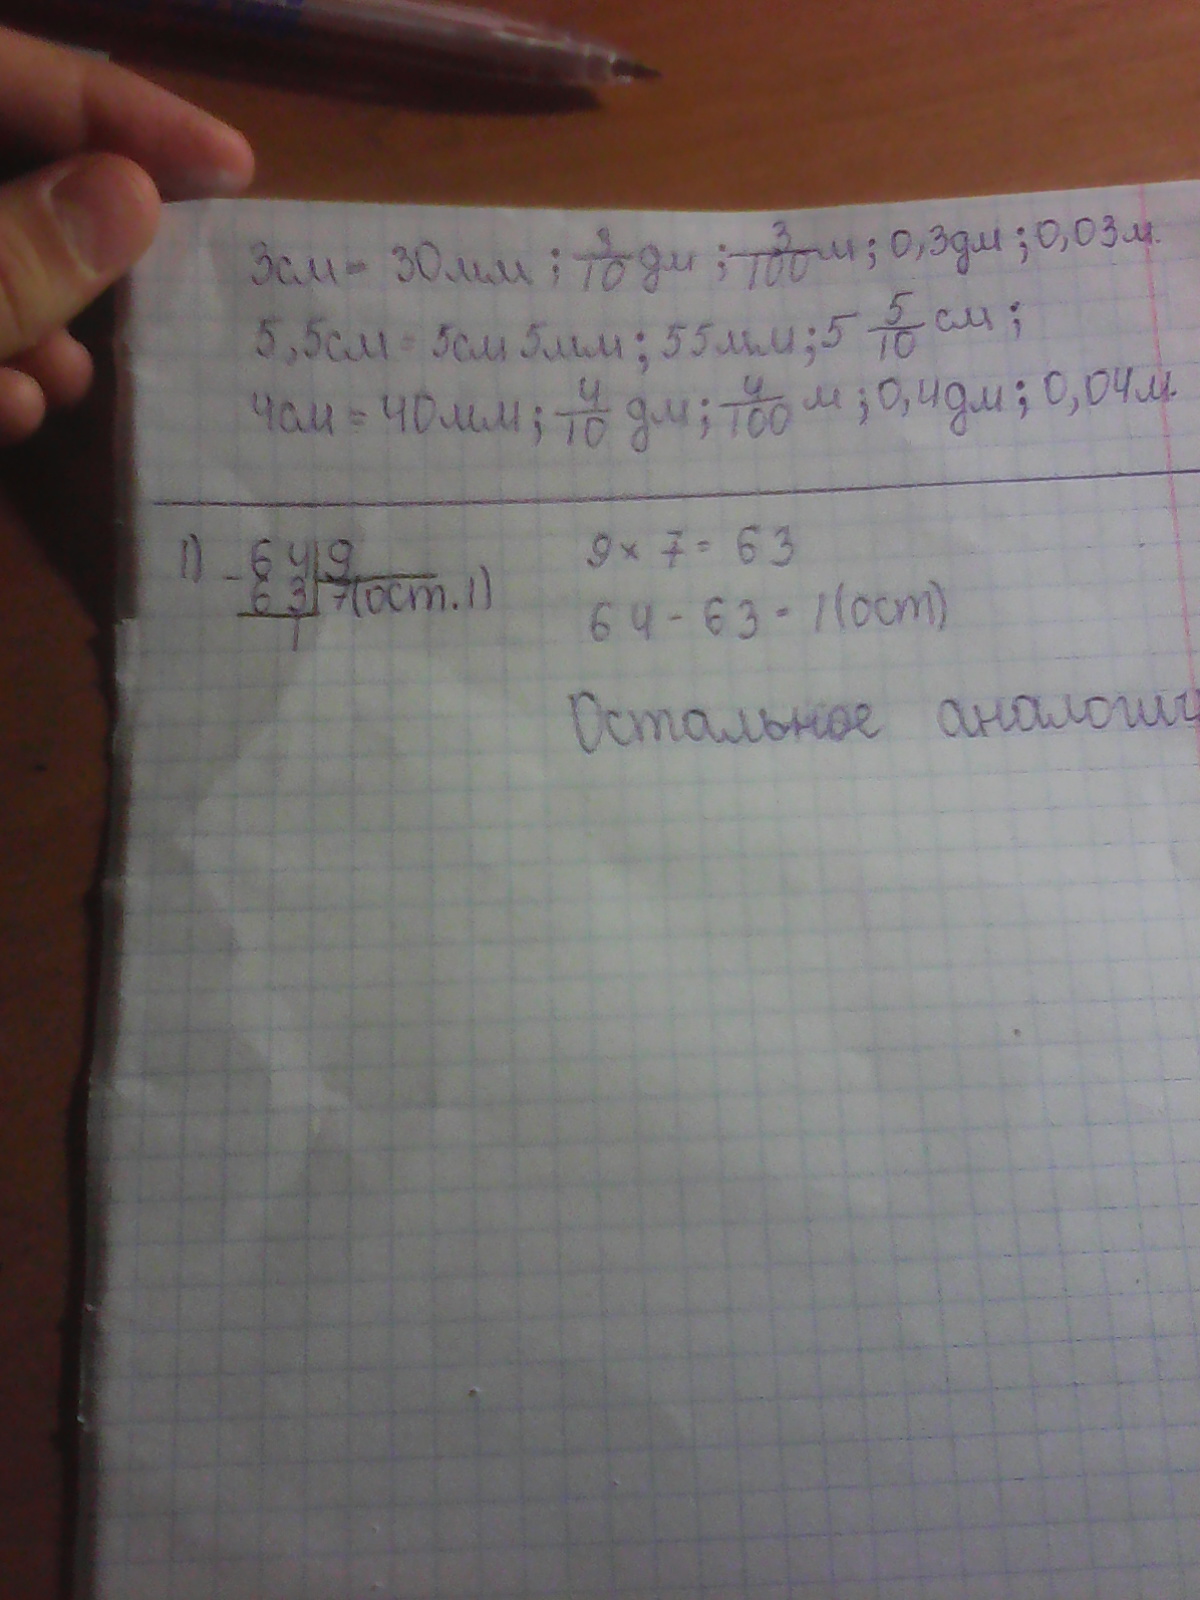 3см = 30мм; 3/10 дм; 3/100 м; 0,3дм; 0,03м.
5,5см = 5см 5мм; 55мм; 5 5/10 см;
4см = 40мм; 4/10 дм; 4/100 м; 0,4дм; 0,04м.
1) - 64 | 9
63 | 7(ост.1)
1
9 × 7 = 63
64 - 63 = 1(ост)
Остальное аналогич